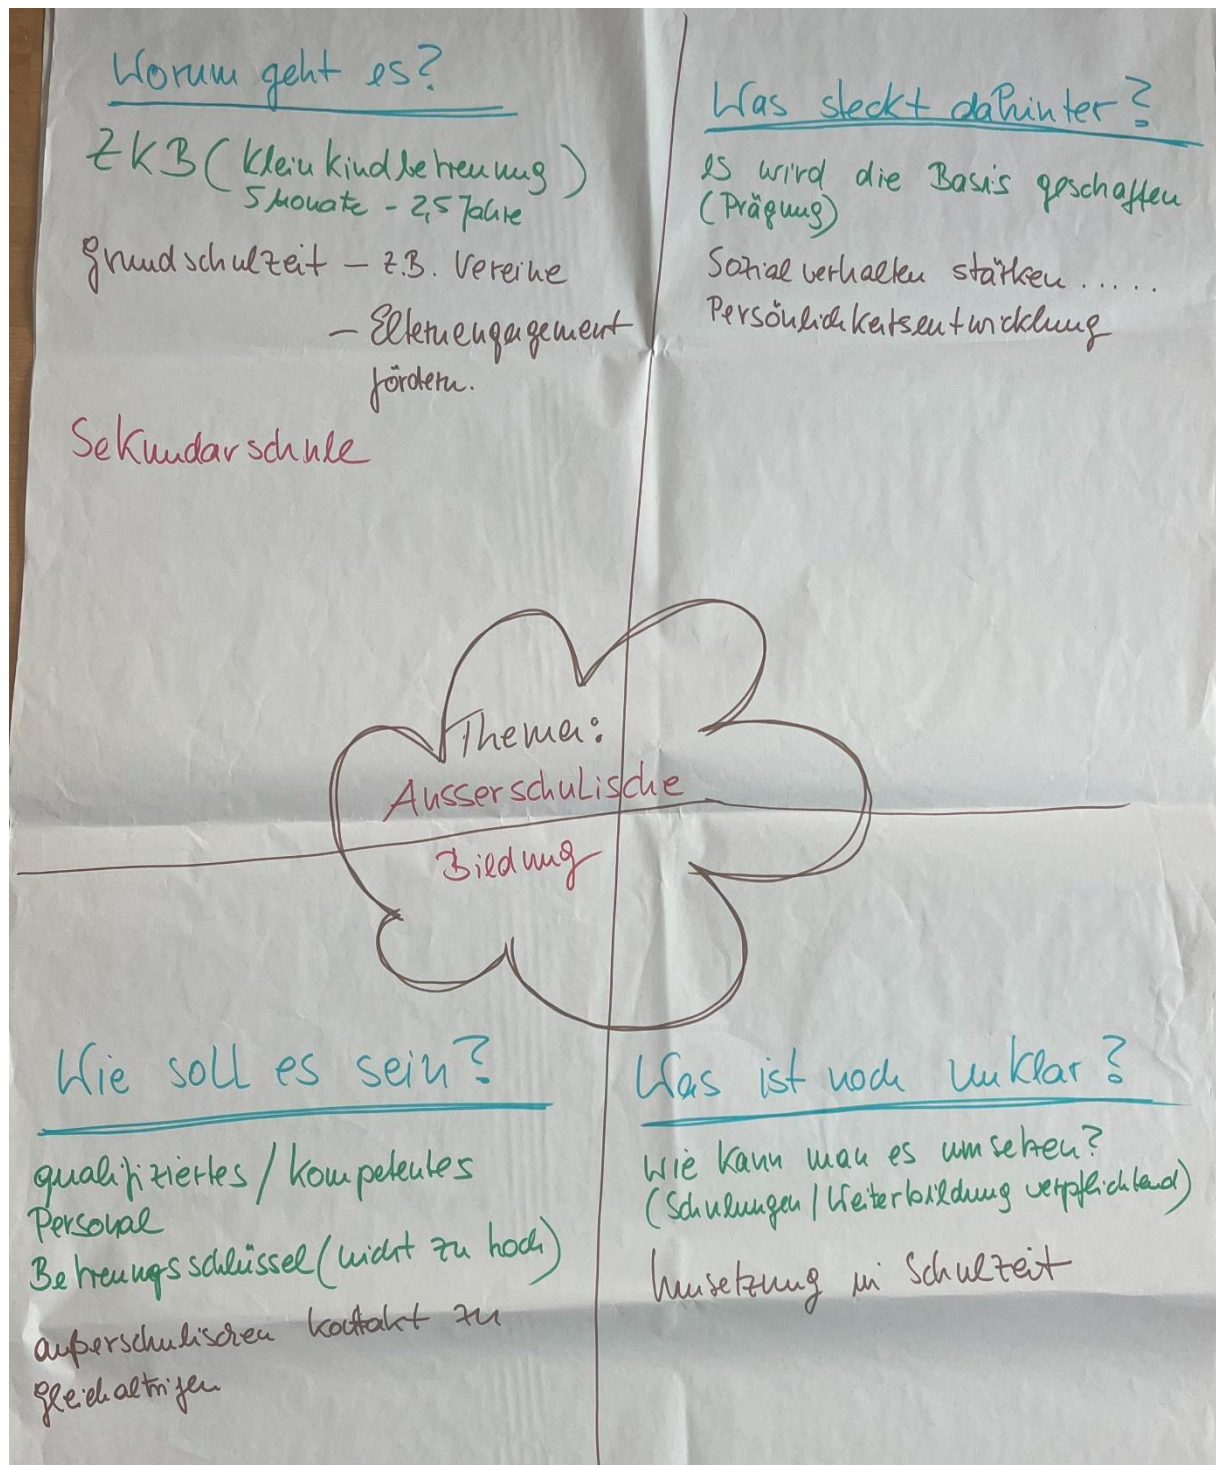 Worum geht es?
ZKB (Kleinkindbetreuung)
5 Monate - 2,5 Jahre
Grundschulzeit - z.B. Vereine
- Elternengagement
fördern.
Sekundarschule
Was steckt dahinter?
es wird die Basis geschaffen
(Prägung)
Sozialverhalten stärken.....
Persönlichkeitsentwicklung
Thema:
Ausserschulische
Bildung
Wie soll es sein?
qualifiziertes / kompetentes
Personal
Betreungsschlüssel (nicht zu hoch)
außerschulischen Kontakt zu
gleichaltrigen
Was ist noch unklar?
Wie kann man es umsetzen?
(Schulungen / Weiterbildung verpflichtend)
Umsetzung in Schulzeit